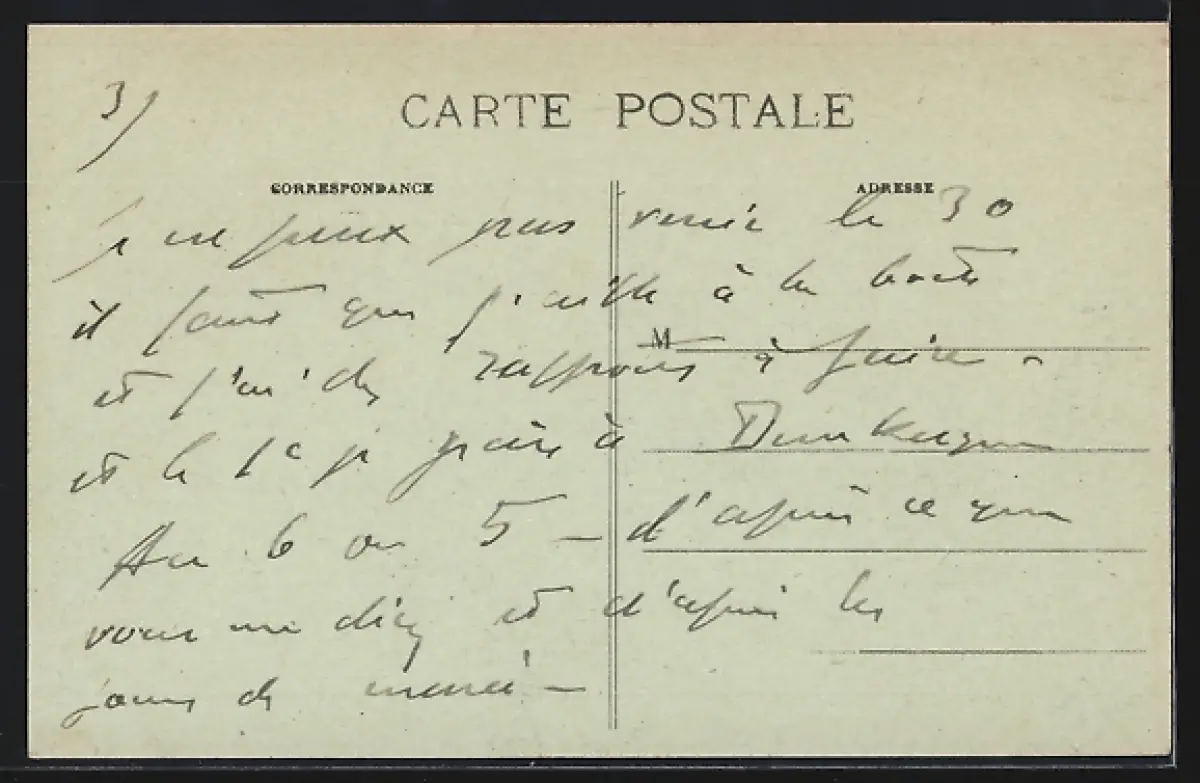 3/
CARTE POSTALE
CORRESPONDANCE
ADRESSE
je ne peux pas venir le 30
il faut que j'aille à la
M
et j'ai des rapports à faire -
et le 1e je à Dunkerque
Au 6 ou 5 - d'après ce que
vous me direz et d'après les
jours de -